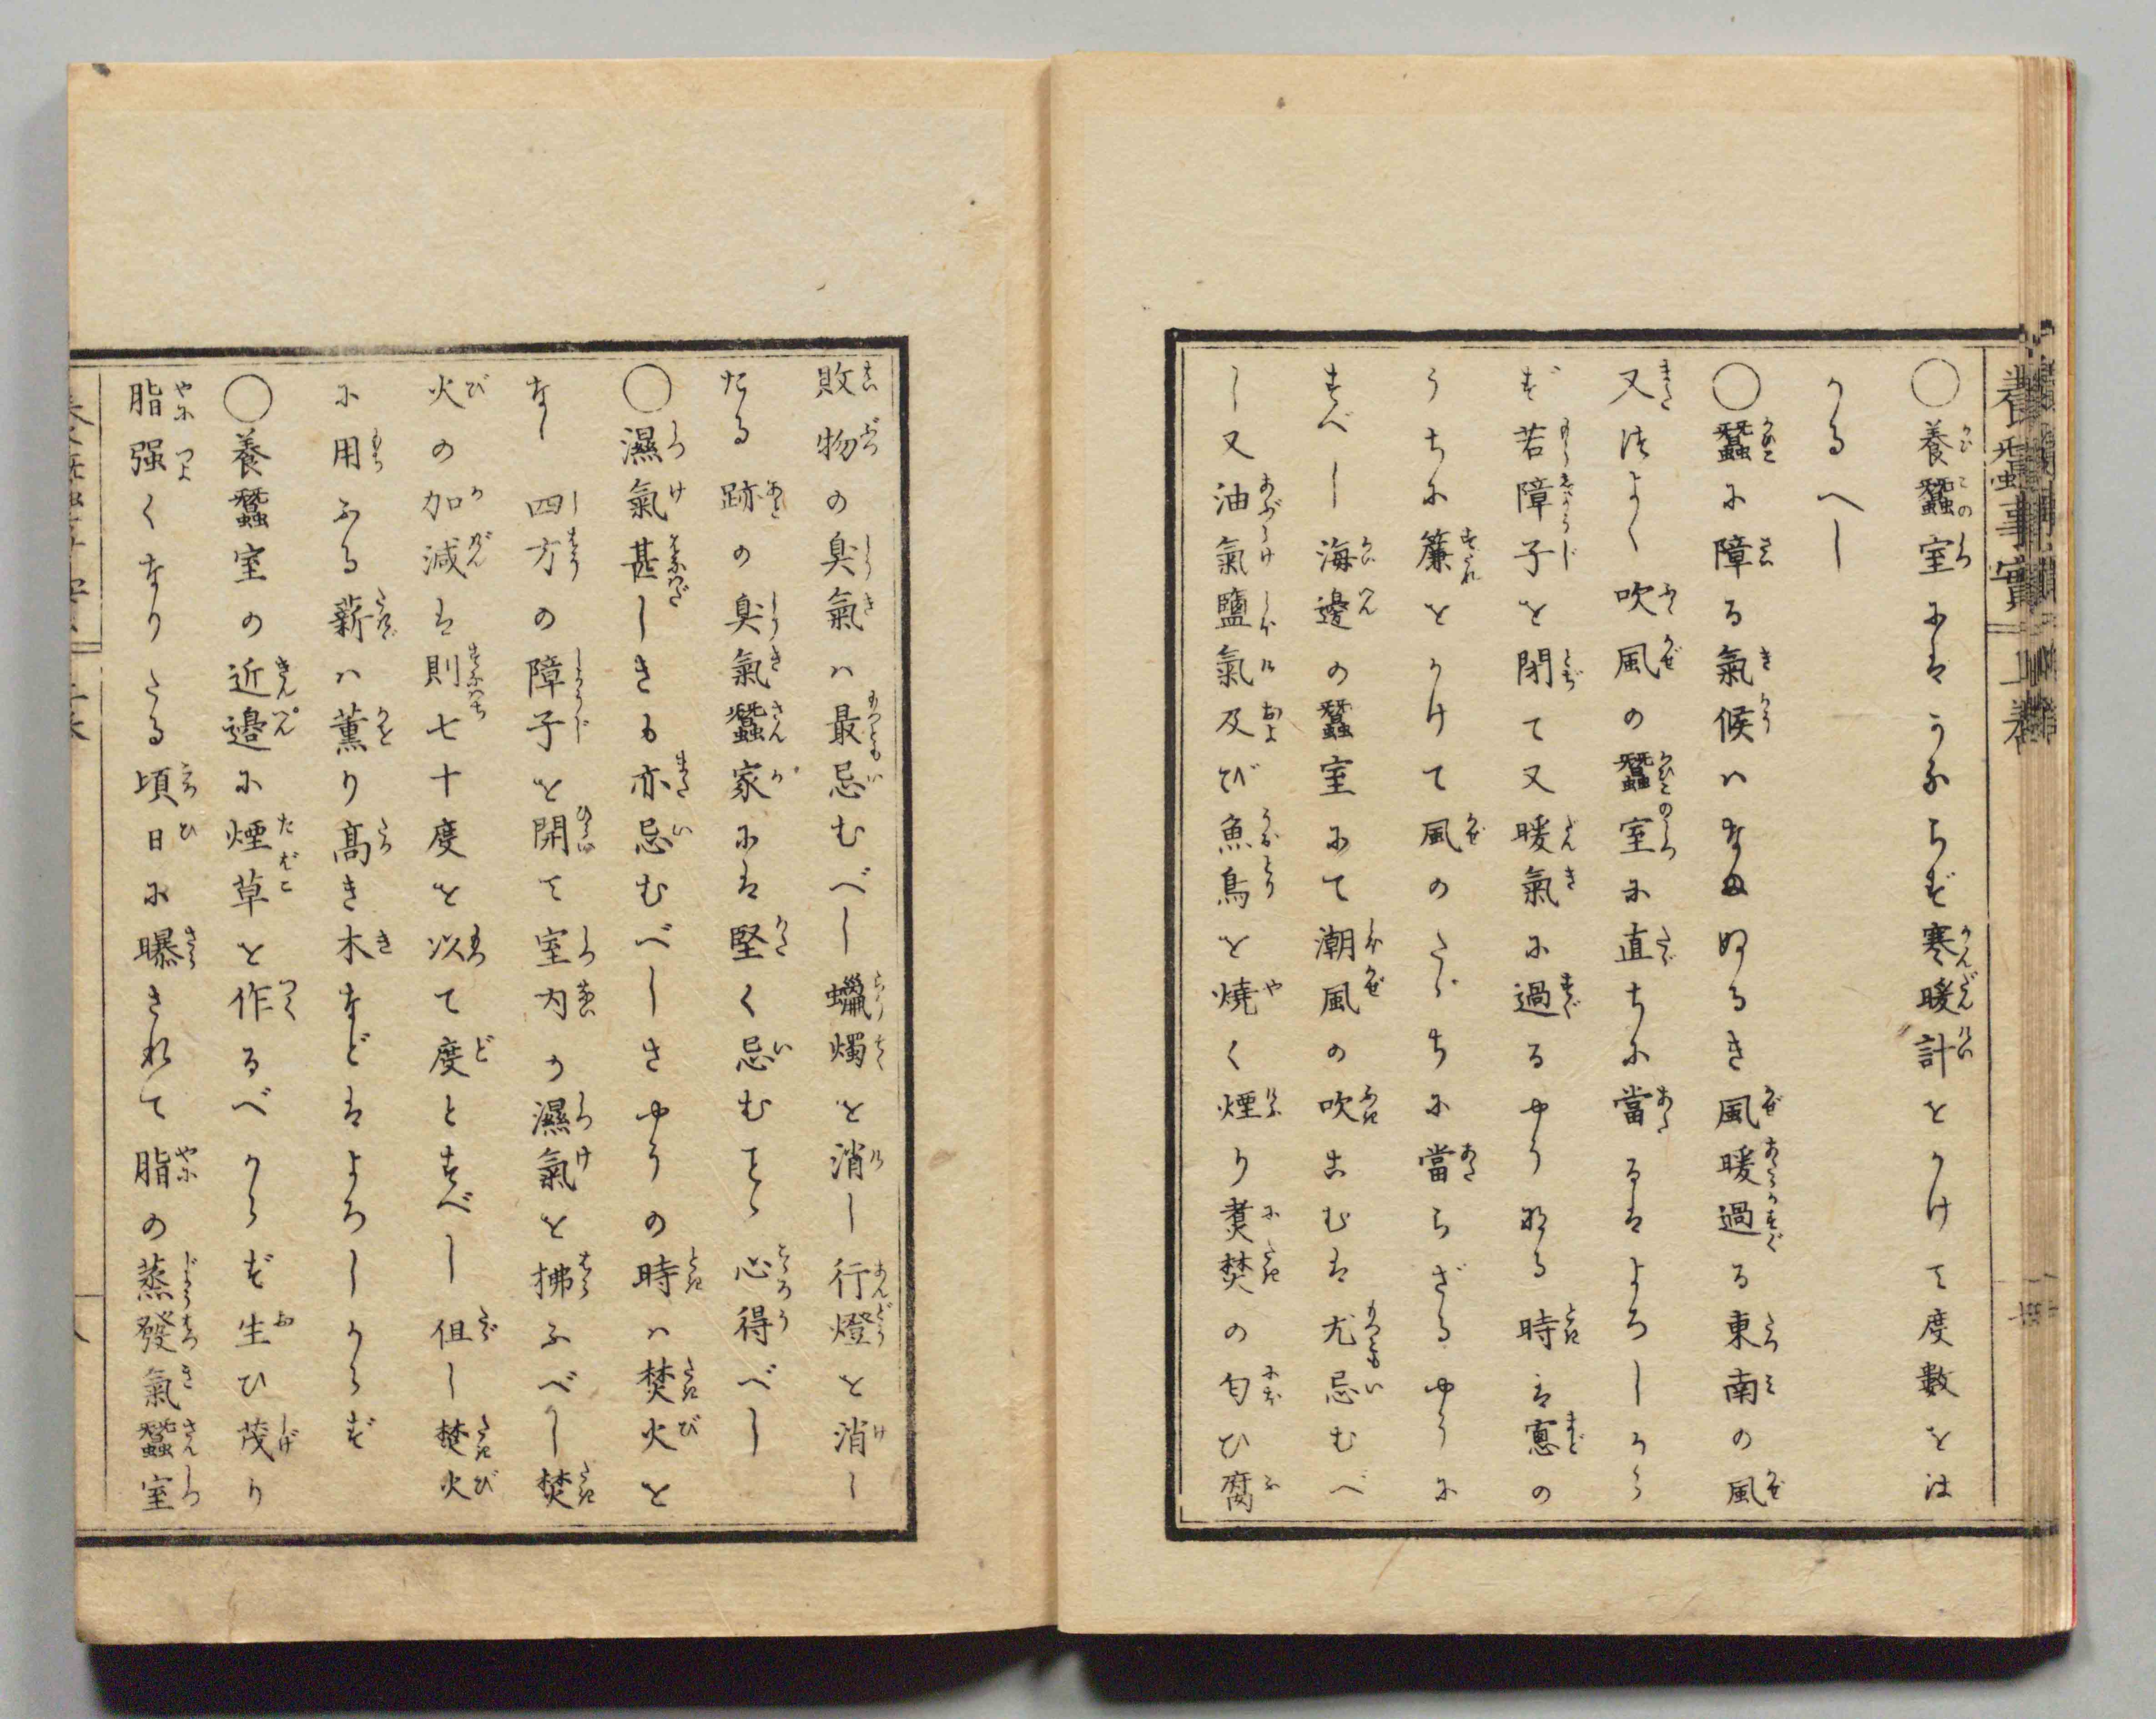 養蠶事實 上卷
○養蠶室にはかならず寒暖計をかけて度數をは
かるへし
○蠶に障る氣候はなまぬるき風暖過る東南の風
又つよく吹風の蠶室に直ちに當るはよろしから
ず若障子を閉て又暖氣に過るやうなる時は窓の
うちに簾をかけて風のたゞちに當らざるやうに
すべし海邊の蠶室にて潮風の吹こむは尤忌むべ
し又油氣鹽氣及び魚鳥を燒く煙り煮焚の匂ひ腐
敗物の臭氣は最忌むべし蠟燭を消し行燈を消し
たる跡の臭氣蠶家には堅く忌むことゝ心得べし
○濕氣甚しきも亦忌むべしさやうの時は焚火を
なし四方の障子を開て室内の濕氣を拂ふべし焚
火の加減は則七十度を以て度とすべし但し焚火
に用ふる薪は薫り髙き木などはよろしからず
○養蠶室の近邊に煙草を作るべからず生ひ茂り
脂强くなりたる頃日に曝されて脂の蒸發氣蠶室